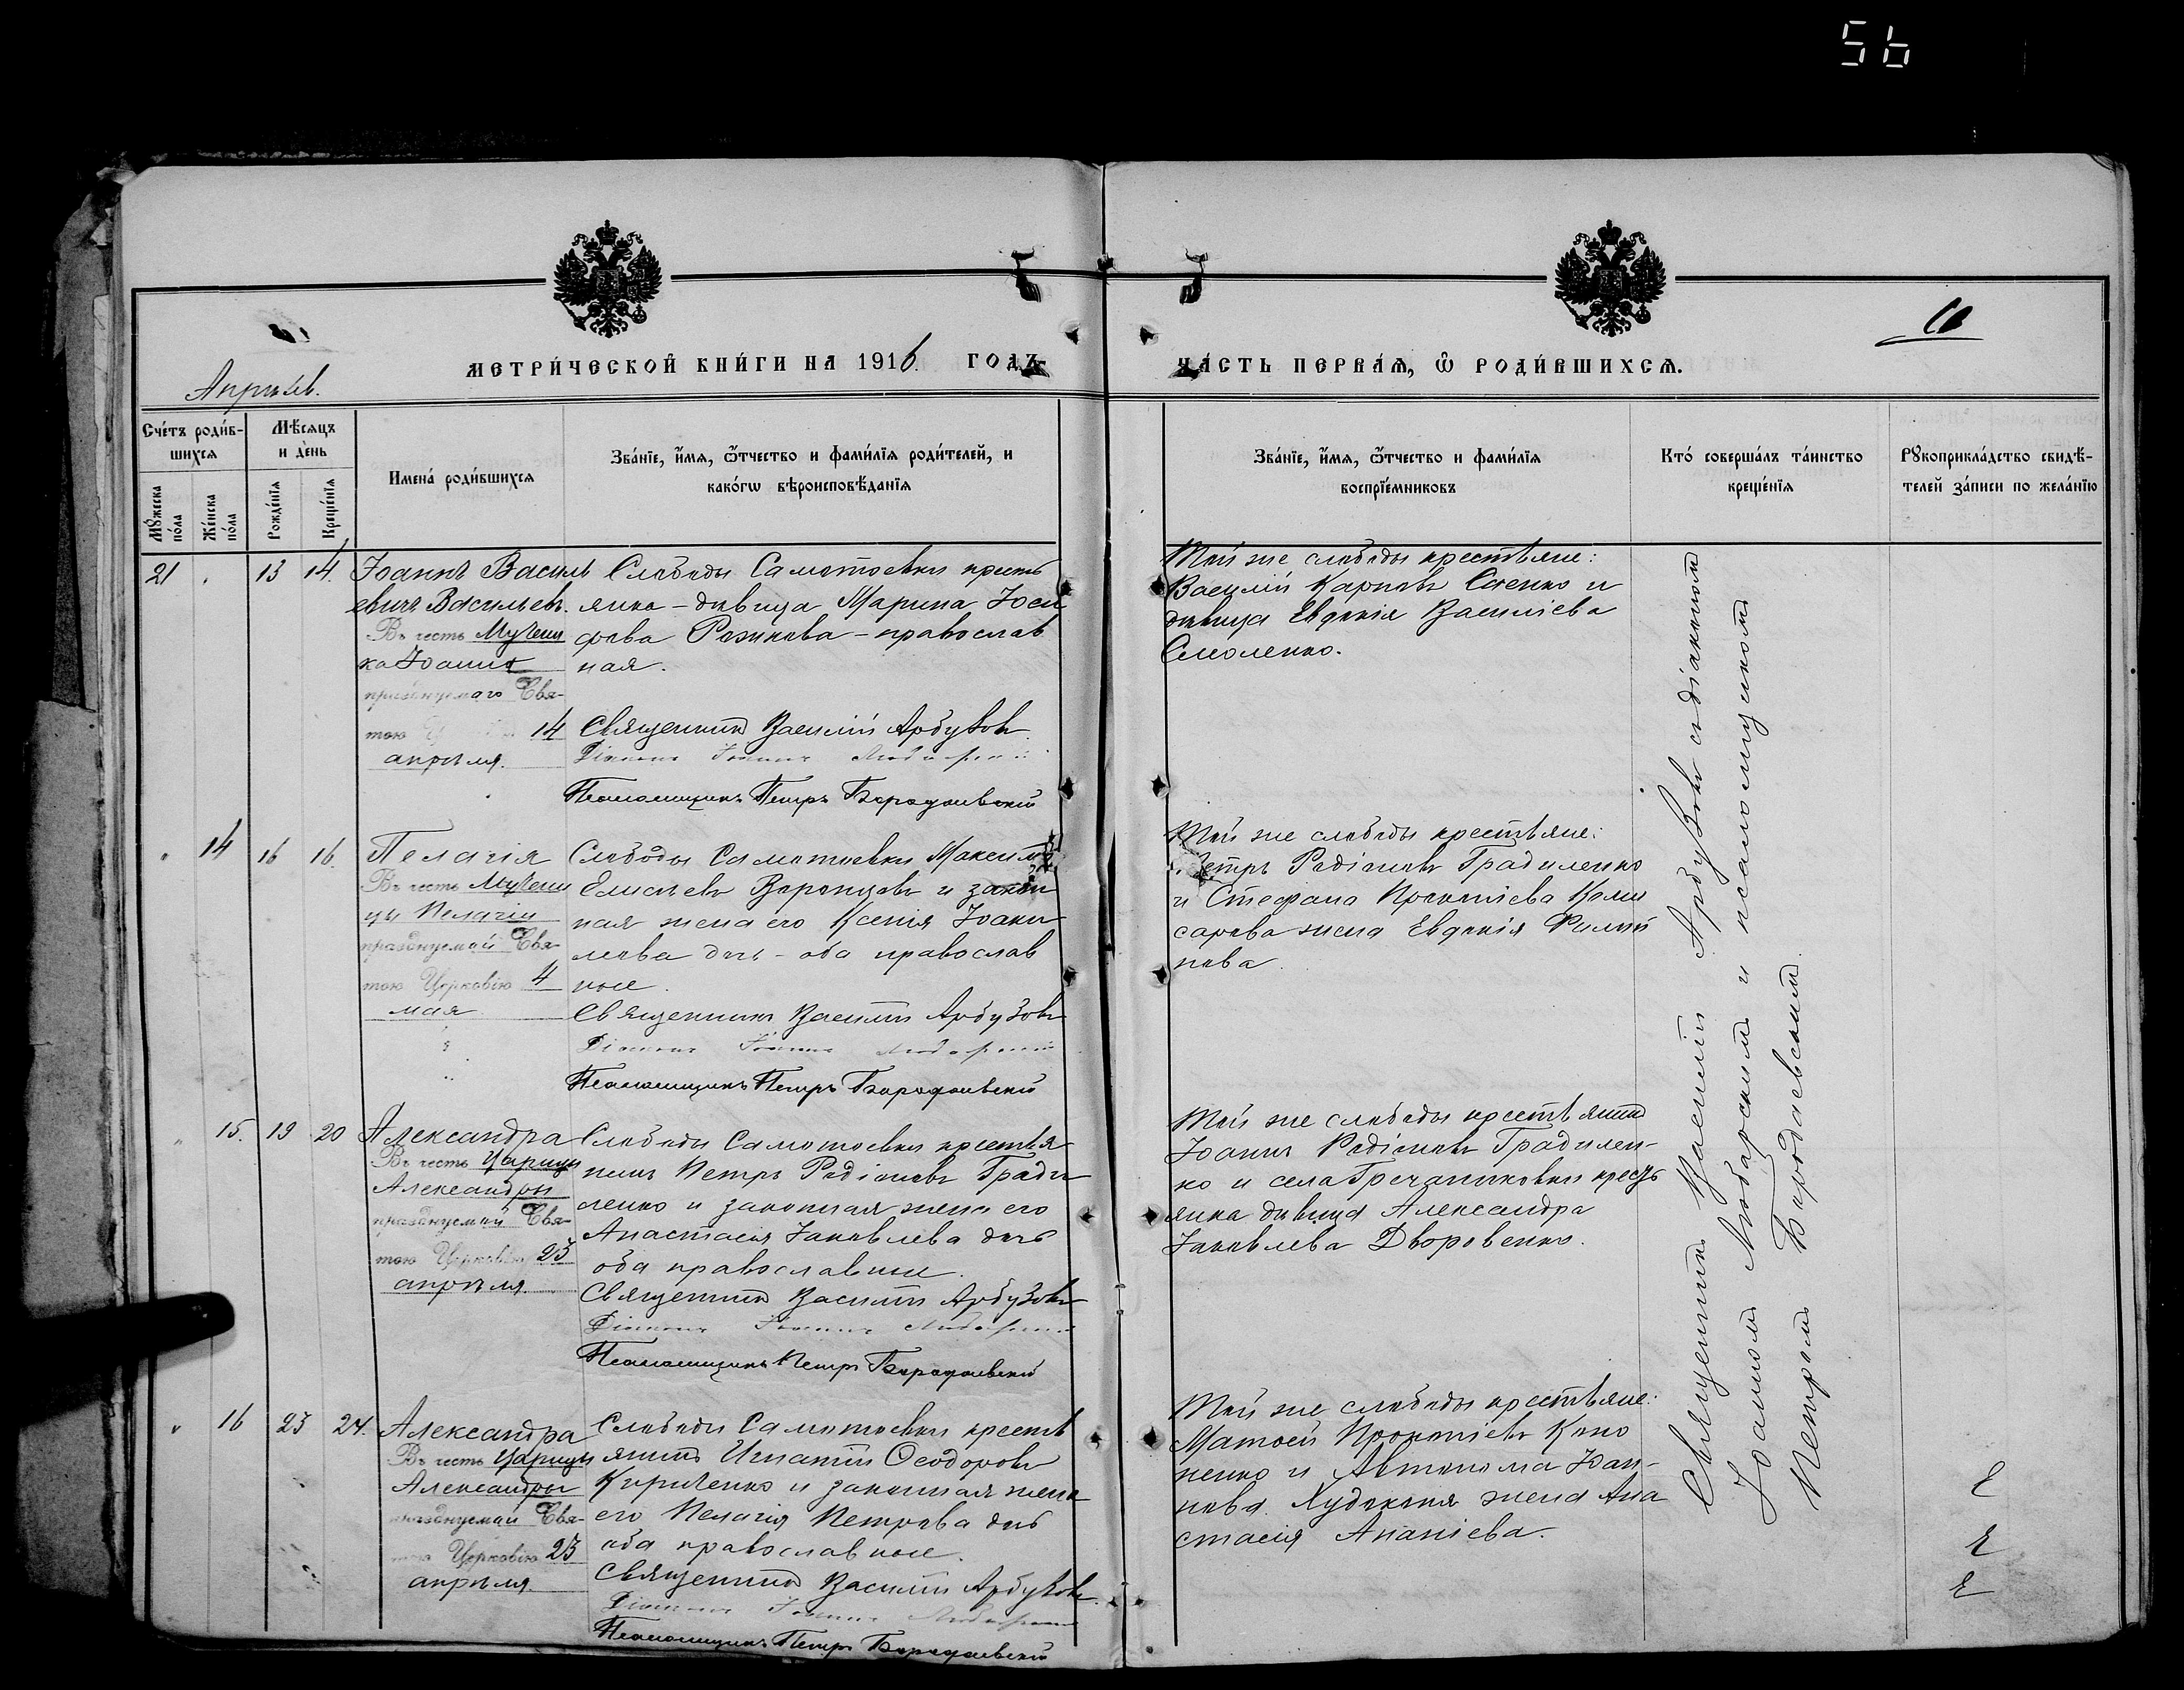 56
10
Апрѣль.
МЕТРИ́ЧЕСКОЙ КНИ́ГИ НА 1916 ГОДЪ
ЧА́СТЬ ПЕРВА́Я, Ѡ҆ РОДИ́ВШИХСѦ.
Сче́тъ роди́в-
шихсѧ
Мꙋ́жеска по́ла
Же́нска по́ла
Мѣ́сѧцъ
и де́нь
Рожде́нїѧ
Креще́нїѧ
Имена́ роди́вшихсѧ
Зва́нїе, и҆́мѧ, ѻ҆́тчество и фами́лїѧ роди́телей, и
како́гѡ вѣроисповѣ́данїѧ
Зва́нїе, и҆́мѧ, ѻ҆́тчество и фами́лїѧ
воспрїе́мниковъ
Кто́ соверша́лъ та́инство
креще́нїѧ
Рꙋкоприкла́дство свидѣ́-
телей за́писи по жела́нїю
21
13 14.
Іоаннъ Василь
евичъ Васильевъ.
Въ честь Мучени
ка Іоанна
празднуемаго Свя-
тою 14
апрѣля.
Слободы Самотоевки кресть
янка - дѣвица Марина Іоси
фова Рожкова - православ
ная.
Священникъ Василій Арбузовъ
Діаконъ Іоаннъ Любарскій
Псаломщикъ Петръ Бородаевскій
Той же слободы крестьяне:
Василій Карповъ Саенко и
дѣвица Евдокія Василіева
Смоленко.
14 16 16.
Пелагія
Въ честь Мучени
цы Пелагіи
празднуемой Свя-
тою Церковію 4
мая
Слободы Самотоевки Максимъ
Елисѣевъ Воронцовъ и закон
ная жена его Ксенія Іоаки
мова дочь - оба православ
ные.
Священникъ Василій Арбузовъ
Діаконъ Іоаннъ Любарскій
Псаломщикъ Петръ Бородаевскій
Той же слободы крестьяне:
Петръ Родіоновъ Градиленко
и Стефана Прокопіева Коми
сарова жена Евдокія Филип
пова.
15. 19 20
Александра
Въ честь Царицы
Александры
празднуемой Свя-
тою Церковію 23
апрѣля.
Слободы Самотоевки крестья
нинъ Петръ Родіоновъ Гради
ленко и законная жена его
Анастасія Іаковлева дочь
оба православные.
Священникъ Василій Арбузовъ
Діаконъ Іоаннъ Любарскій
Псаломщикъ Петръ Бородаевскій
Той же слободы крестьянинъ
Іоаннъ Родіоновъ Градилен-
ко и села Гречаниковки крест
янка дѣвица Александра
Іаковлева Дворовенко.
16 23 24.
Александра
Въ честь Царицы
Александры
празднуемой Свя-
Церковію 23
апрѣля.
Слободы Самотоевки кресть
янинъ Игнатій Ѳеодоровъ
Кириченко и законная жена
его Пелагія Петрова дочь
оба православные.
Священникъ Василій Арбузовъ
Діаконъ Іоаннъ Любарскій
Псаломщикъ Петръ Бородаевскій
Той же слободы крестьяне:
Матѳей Прокопіевъ Коно
ненко и Автонома Іоан-
нова Худоконя жена Ана
стасія Ананіева.
Священникъ Василій Арбузовъ съ діакономъ
Іоанномъ Любарскимъ и псаломщикомъ
Петромъ Бородаевскимъ.